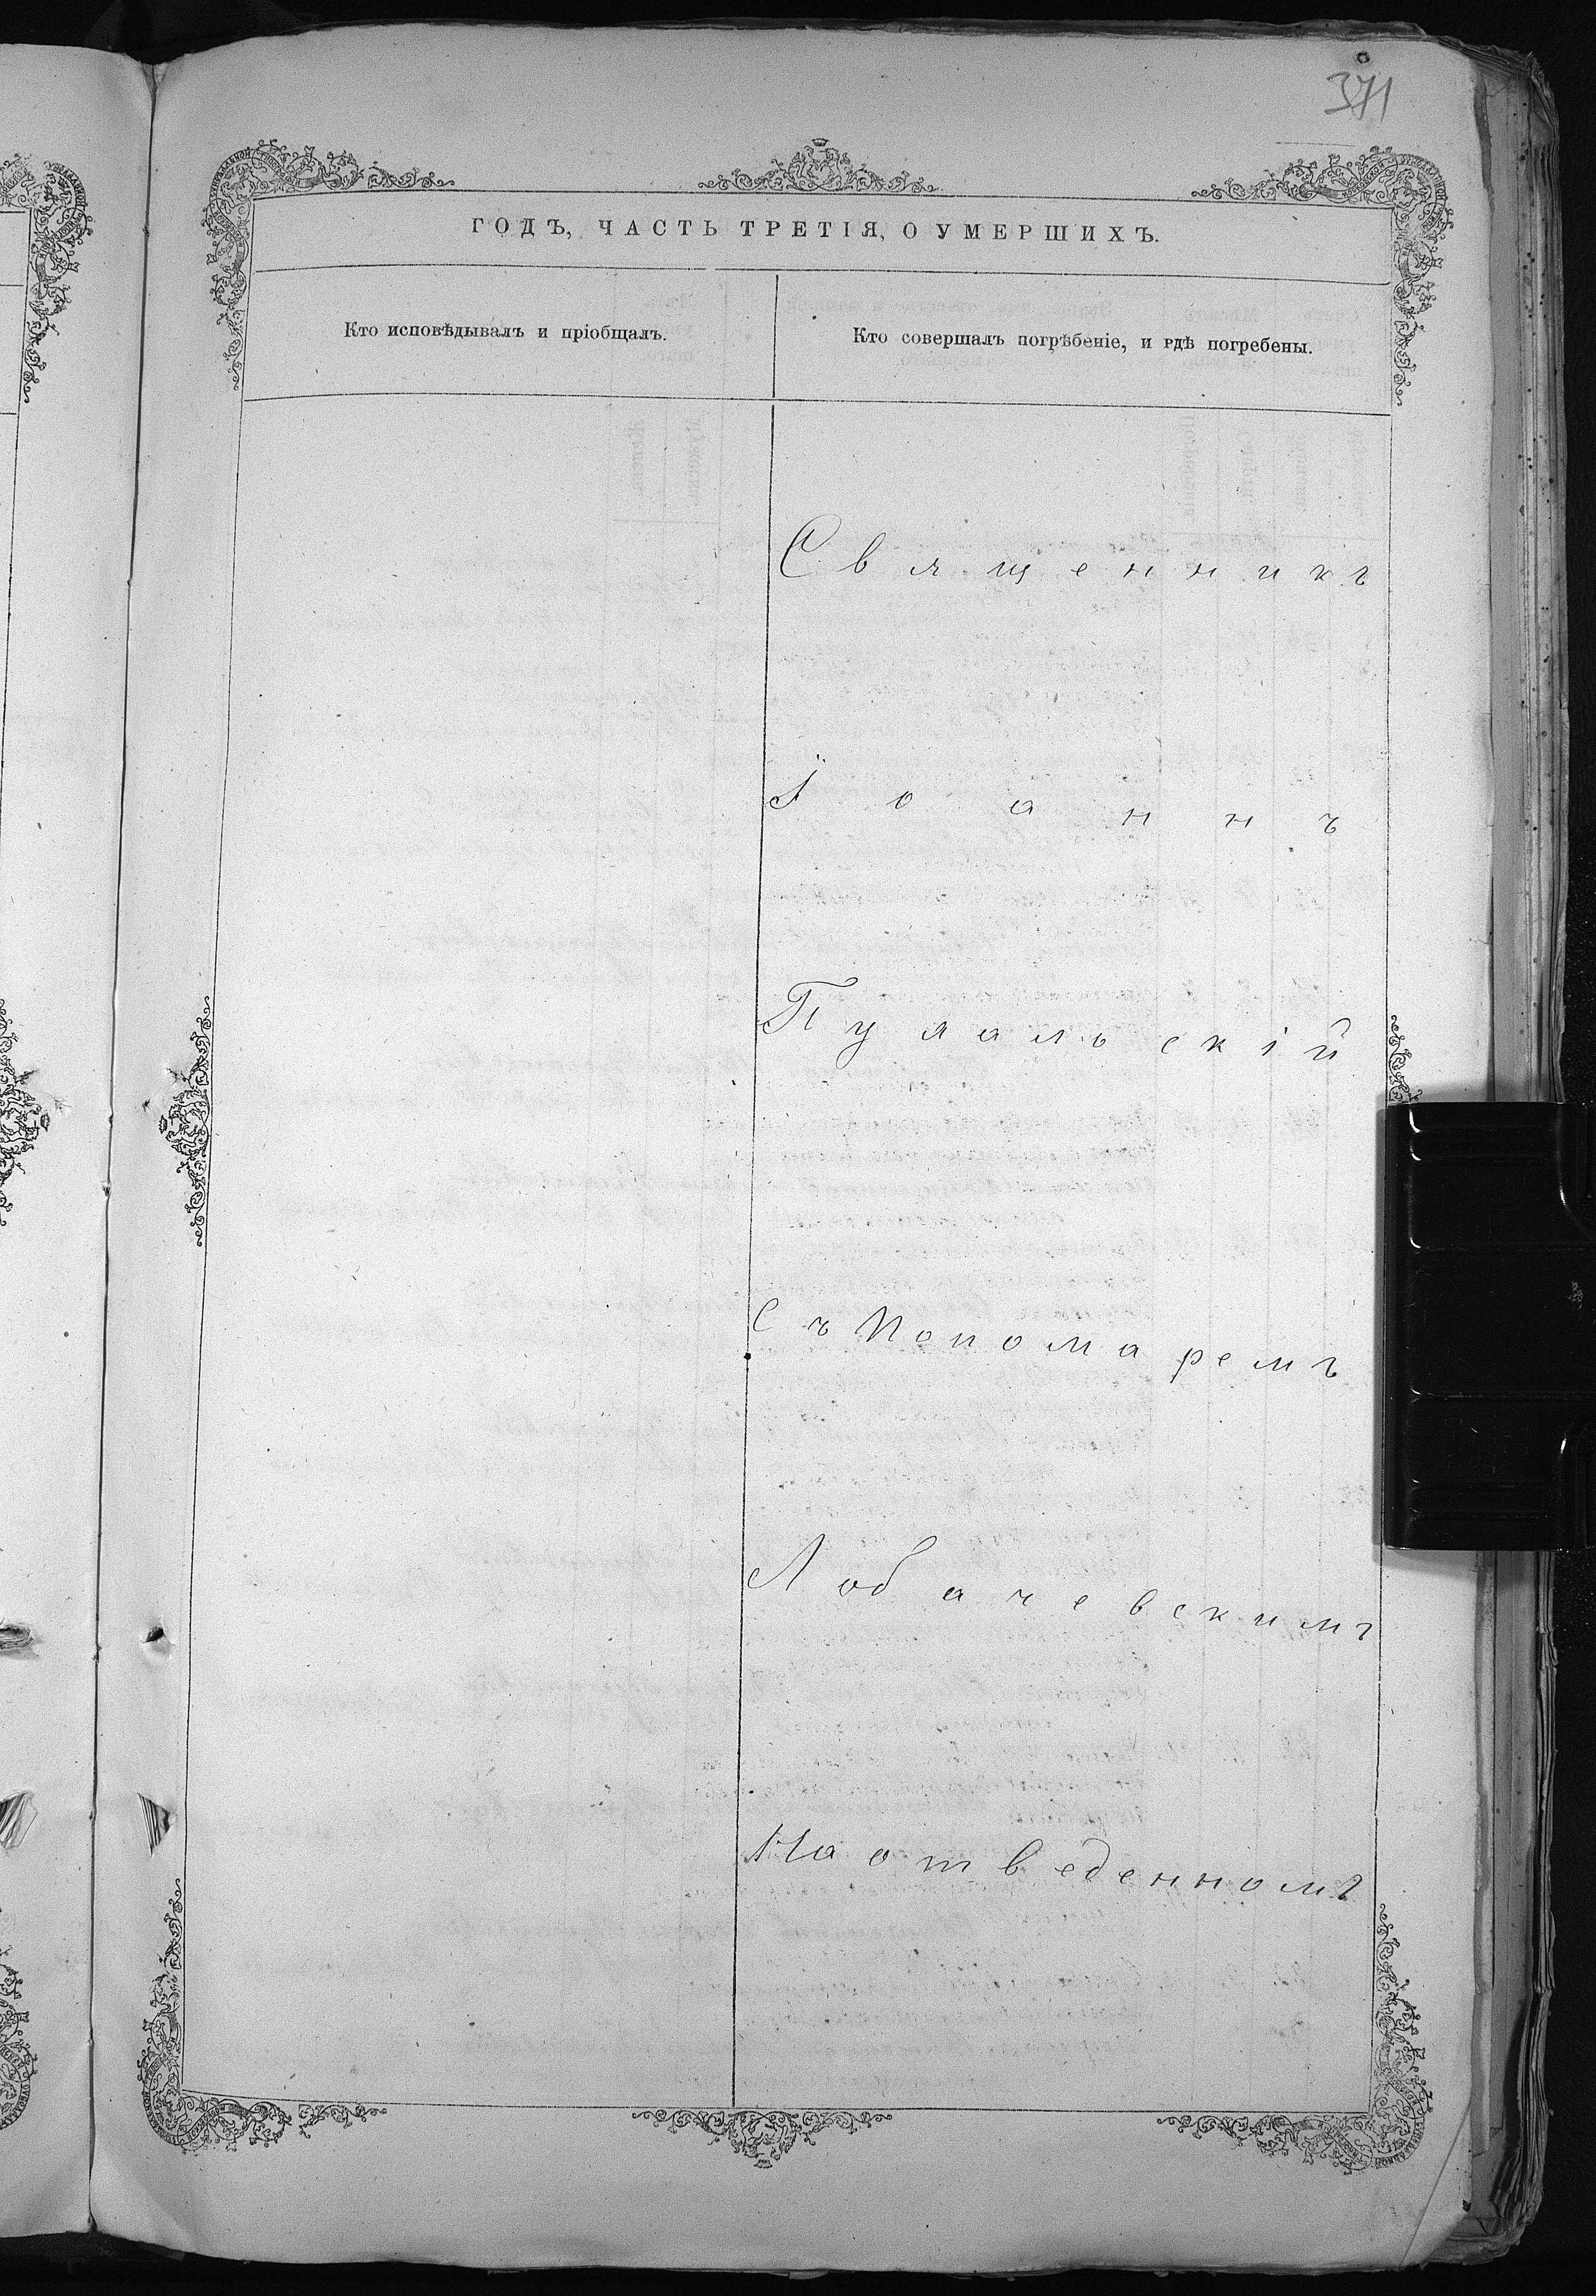 371
ГОДЪ, ЧАСТЬ ТРЕТІЯ, О УМЕРШИХЪ.
Кто исповѣдывалъ и пріобщалъ.
Кто совершалъ погрѣбеніе, и гдѣ погребены.
Священникъ
Іоаннъ
Пулальскій
Съ Пономаремъ
Лобачевскимъ
На отведенномъ